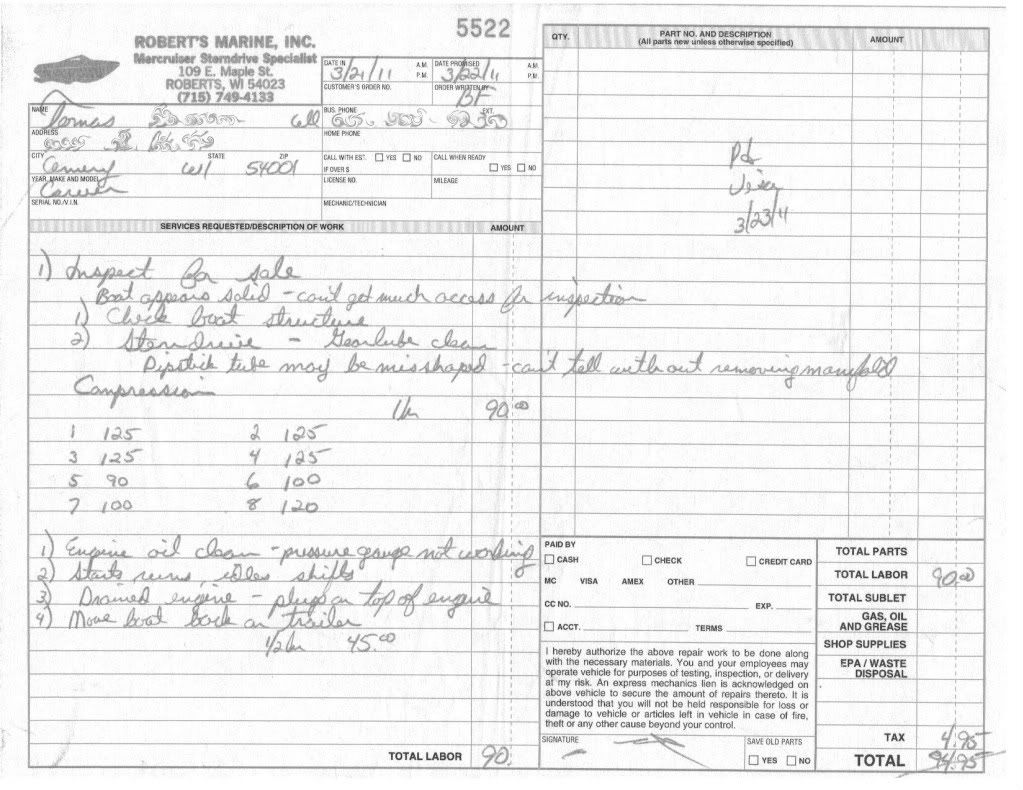 5522
ROBERT'S MARINE, INC.
Mercruiser Sterndrive Specialist
109 E. Maple St.
ROBERTS, WI 54023
(715) 749-4133
DATE IN 3/21/11 A.M. P.M.
DATE PROMISED 3/22/11 A.M. P.M.
CUSTOMER'S ORDER NO.
ORDER WRITTEN BY BF
NAME
BUS. PHONE EXT.
Cell
ADDRESS
HOME PHONE
CITY STATE ZIP
WI 54001
CALL WITH EST. YES NO
IF OVER $
CALL WHEN READY YES NO
YEAR, MAKE AND MODEL
Carver
LICENSE NO.
MILEAGE
SERIAL NO./V.I.N.
MECHANIC/TECHNICIAN
SERVICES REQUESTED/DESCRIPTION OF WORK AMOUNT
1) Inspect for sale
Boat appears solid - can't get much access for inspection
1) Check boat structure
2) Sterndrive - Gearlube clean
Dipstick tube may be misshaped - can't tell without removing manifold
Compression
1 hr 90.00
1 125 2 125
3 125 4 125
5 90 6 100
7 100 8 120
1) Engine oil clean - pressure gauge not working
2) Starts runs, idles shifts
3) Drained engine - plugs on top of engine
4) Move boat back on trailer
1/2 hr 45.00
TOTAL LABOR 90.
QTY. PART NO. AND DESCRIPTION AMOUNT
(All parts new unless otherwise specified)
Pd
3/23/11
PAID BY
CASH CHECK CREDIT CARD
MC VISA AMEX OTHER
CC NO. EXP.
ACCT. TERMS
I hereby authorize the above repair work to be done along
with the necessary materials. You and your employees may
operate vehicle for purposes of testing, inspection, or delivery
at my risk. An express mechanics lien is acknowledged on
above vehicle to secure the amount of repairs thereto. It is
understood that you will not be held responsible for loss or
damage to vehicle or articles left in vehicle in case of fire,
theft or any other cause beyond your control.
SIGNATURE
SAVE OLD PARTS
YES NO
TOTAL PARTS
TOTAL LABOR 90.00
TOTAL SUBLET
GAS, OIL
AND GREASE
SHOP SUPPLIES
EPA / WASTE
DISPOSAL
TAX 4.95
TOTAL 94.95